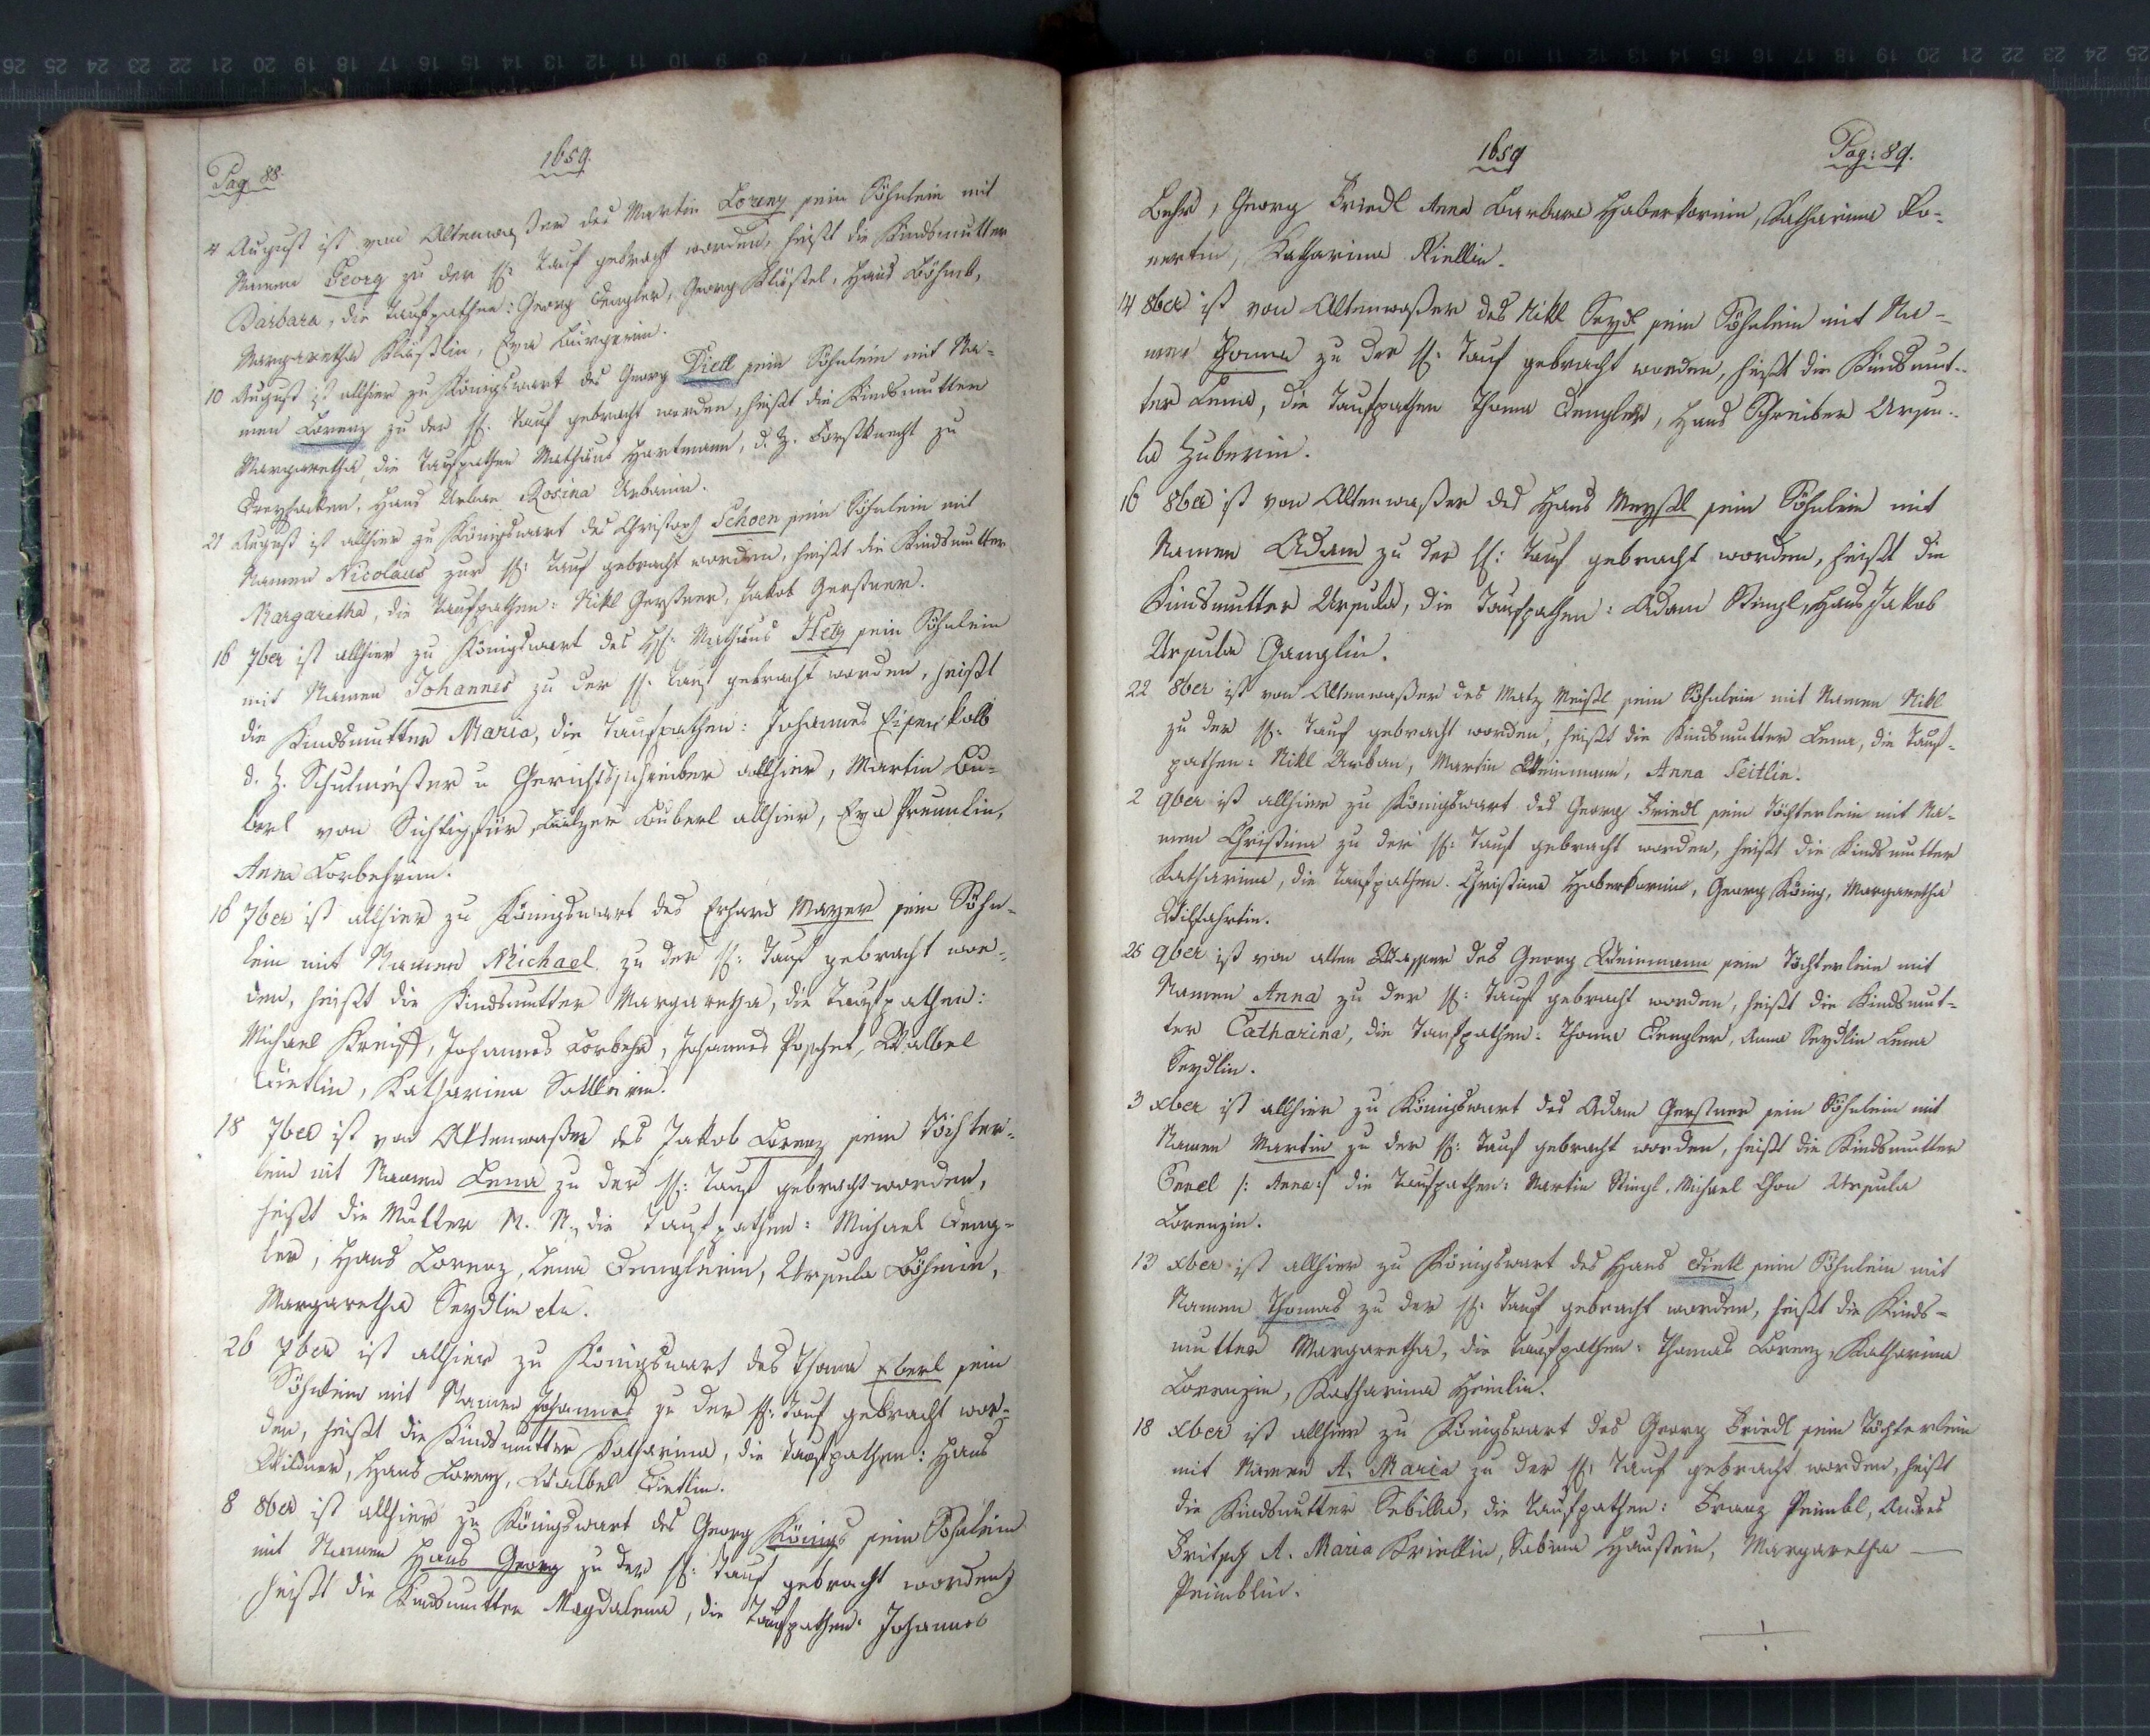 Pag. 88.
1659.
4 August ist von Altenwaßer des Martin Lorenz sein Söhnlein mit
Namen Georg zu der hl: Tauf gebracht worden, heißt die Kindsmutter
Barbara, die Taufpathen: Georg Dengler, Georg Kläßel, Hans Böhmb,
Margaretha Kläßlin, Eva Burgerin.
10 August ist allhier zu Königswart des Georg Dietl sein Söhnlein mit Na-
men Lorenz zu der hl: Tauf gebracht worden, heißt die Kindsmutter
Margaretha, die Taufpathen Mathäus Hartmann, d. Z. Forstknecht zu
Dreyhacken, Hans Urban Rosina Urbanin.
21 August ist allhier zu Königswart des Christoph Schoen sein Söhnlein mit
Namen Nicolaus zur hl: Tauf gebracht worden, heißt die Kindsmutter
Margaretha, die Taufpathen: Nikl Gerstner, Jakob Gerstner.
16 7ber ist allhier zu Königswart des H: Mathäus Hetz sein Söhnlein
mit Namen Johannes zu der hl. Tauf gebracht worden, heißt
die Kindsmutter Maria, die Taufpathen: Johannes Eisenkolb
d. Z. Schulmeister u Gerichtsschreiber allhier, Martin Bu-
berl von Sichtigfür, Buberl allhier, Eva
Anna Lorbehrin.
16 7ber ist allhier zu Königswart des Erhard Mayer sein Söhn-
lein mit Namen Michael zu der hl: Tauf gebracht wor-
den, heißt die Kindsmutter Margaretha, die Taufpathen:
Michael Johannes Lorbehr, Johannes Walbel
Dietlin, Katharina Sattlerin.
18 7ber ist von Altenwaßer des Jakob Lorenz sein Töchter-
lein mit Namen Lena zu der hl: Tauf gebracht worden,
heißt die Mutter N. N., die Taufpathen: Michael Deng-
ler, Hans Lorenz, Lena Denglerin, Ursula Böhmin,
Margaretha Seydlin etc.
26 7ber ist allhier zu Königswart des Thoma Eberl sein
Söhnlein mit Namen Johannes zu der hl: Tauf gebracht wor-
den, heißt die Kindsmutter Katharina, die Taufpathen: Hans
Wildner, Hans Lorenz, Walbel Dietlin.
8 8ber ist allhier zu Königswart des Georg Königs sein Söhnlein
mit Namen Hans Georg zu der hl: Tauf gebracht worden,
heißt die Kindsmutter Magdalena, die Taufpathen: Johannes
1659
Pag: 89.
Behr, Georg Friedl Anna Barbara Haberkornin, Katharina Po-
nertin, Katharina Kiellin.
14 8ber ist von Altenwaßer des Nikl Seydl sein Söhnlein mit Na-
men Thoma zu der hl: Tauf gebracht worden, heißt die Kindsmut-
ter Lena, die Taufpathen Thoma Dengler, Hans Schreiber Ursu-
la Huberin.
16 8ber ist von Altenwaßer des Hans Meyßl sein Söhnlein mit
Namen Adam zu der hl: Tauf gebracht worden, heißt die
Kindsmutter Ursula, die Taufpathen: Adam Stingl, Hans Jakob
Ursula Ganglin.
22 8ber ist von Altenwaßer des Matz Meißl sein Söhnlein mit Namen Nikl
zu der hl: Tauf gebracht worden, heißt die Kindsmutter Lena, die Tauf-
pathen: Nikl Urban, Martin Weinmann, Anna Seitlin.
2 9ber ist allhier zu Königswart des Georg Friedl sein Töchterlein mit Na-
men Christina zu der hl: Tauf gebracht worden, heißt die Kindsmutter
Katharina, die Taufpathen. Christina Haberkornin, Georg König, Margaretha
Wilfahrtin.
25 9ber ist von alten Wasser des Georg Weinmann sein Töchterlein mit
Namen Anna zu der hl: Tauf gebracht worden, heißt die Kindsmut-
ter Catharina, die Taufpathen: Thoma Dengler, Anna Seydlin Lena
Seydlin.
3 xber ist allhier zu Königswart des Adam Gerstner sein Söhnlein mit
Namen Martin zu der hl: Tauf gebracht worden, heißt die Kindsmutter
Enel /: Anna :/ die Taufpathen: Martin Stingl, Michael Ursula
Lorenzin.
13 xber ist allhier zu Königswart des Hans Dietl sein Söhnlein mit
Namen Thomas zu der hl: Tauf gebracht worden, heißt die Kinds-
mutter Margaretha, die Taufpathen: Thomas Lorenz, Katharina
Lorenzin, Katharina Heinlin.
18 xber ist allhier zu Königswart des Georg Friedl sein Töchterlein
mit Namen A. Maria zu der hl: Tauf gebracht worden, heißt
die Kindsmutter Sebilla, die Taufpathen: Franz Peimbl, Andres
Fritsch A. Maria Kriellin, Sabina Haustein, Margaretha
Peimblin.